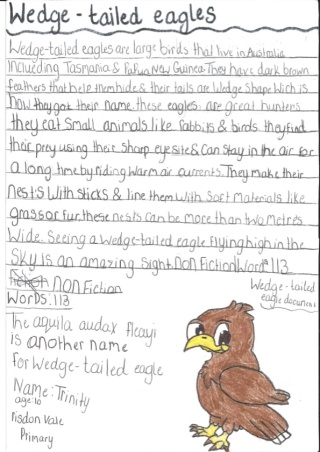 Wedge-tailed eagles
Wedge-tailed eagles are large birds that live in Australia
Including Tasmania & Papua New Guinea. They have dark brown
feathers that help them hide & their tails are Wedge shape Wich is
how they got their name. these eagles are great hunters
they eat small animals like rabbits & birds. they find
their prey using their sharp eye site & Can stay in the air for
a long time by riding warm air currents. They make their
nests With sticks & line them with Soft materials like
grass or fur. these nests can be more than two metres
Wide. Seeing a Wedge-tailed eagle flying high in the
Sky is an amazing sight. Non Fiction Word 113
Non Fiction
Words: 113
Wedge-tailed
eagle document
The aquila audax fleayi
is another name
for Wedge-tailed eagle
Name: Trinity
age: 10
Risdon Vale
Primary